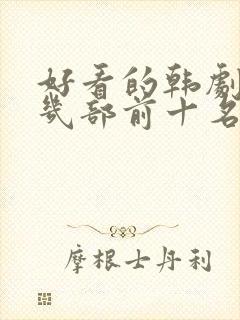 好看的韩劇
幾部前十名
摩根士丹利